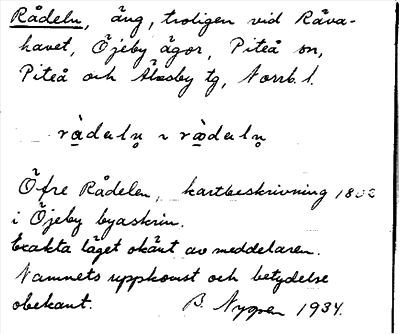 Rådeln, äng, troligen vid Råva-
havet, Öjeby ägor, Piteå sn,
Piteå och Älvsby tg, Norrb. l.
Öfre Rådelen, kartbeskrivning
i Öjeby byaskrin.
Exakta läget okänt av meddelaren.
Namnets uppkomst och betydelse
obekant. B. Nygren 1934.